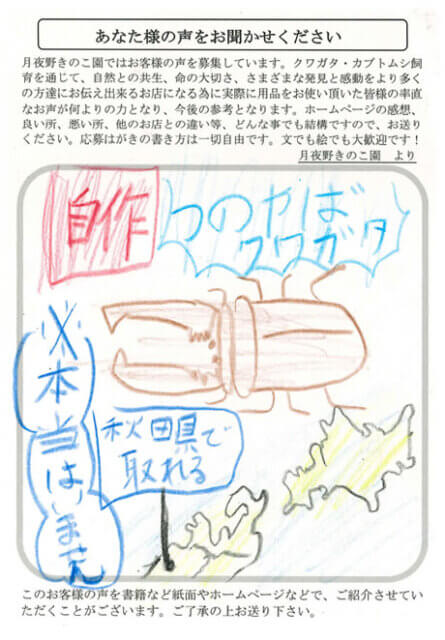 あなた様の声をお聞かせください
月夜野きのこ園ではお客様の声を募集しています。クワガタ・カブトムシ飼
育を通じて、自然との共生、命の大切さ、さまざまな発見と感動をより多く
の方達にお伝え出来るお店になる為に実際に用品をお使い頂いた皆様の率直
なお声が何よりの力となり、今後の参考となります。ホームページの感想、
良い所、悪い所、他のお店との違い等、どんな事でも結構ですので、お送り
ください。応募はがきの書き方は一切自由です。文でも絵でも大歓迎です！
月夜野きのこ園　より
自作
つのやば
クワガタ
※本当はいません
秋田県で
取れる
このお客様の声を書籍など紙面やホームページなどで、ご紹介させてい
ただくことがございます。ご了承の上お送り下さい。